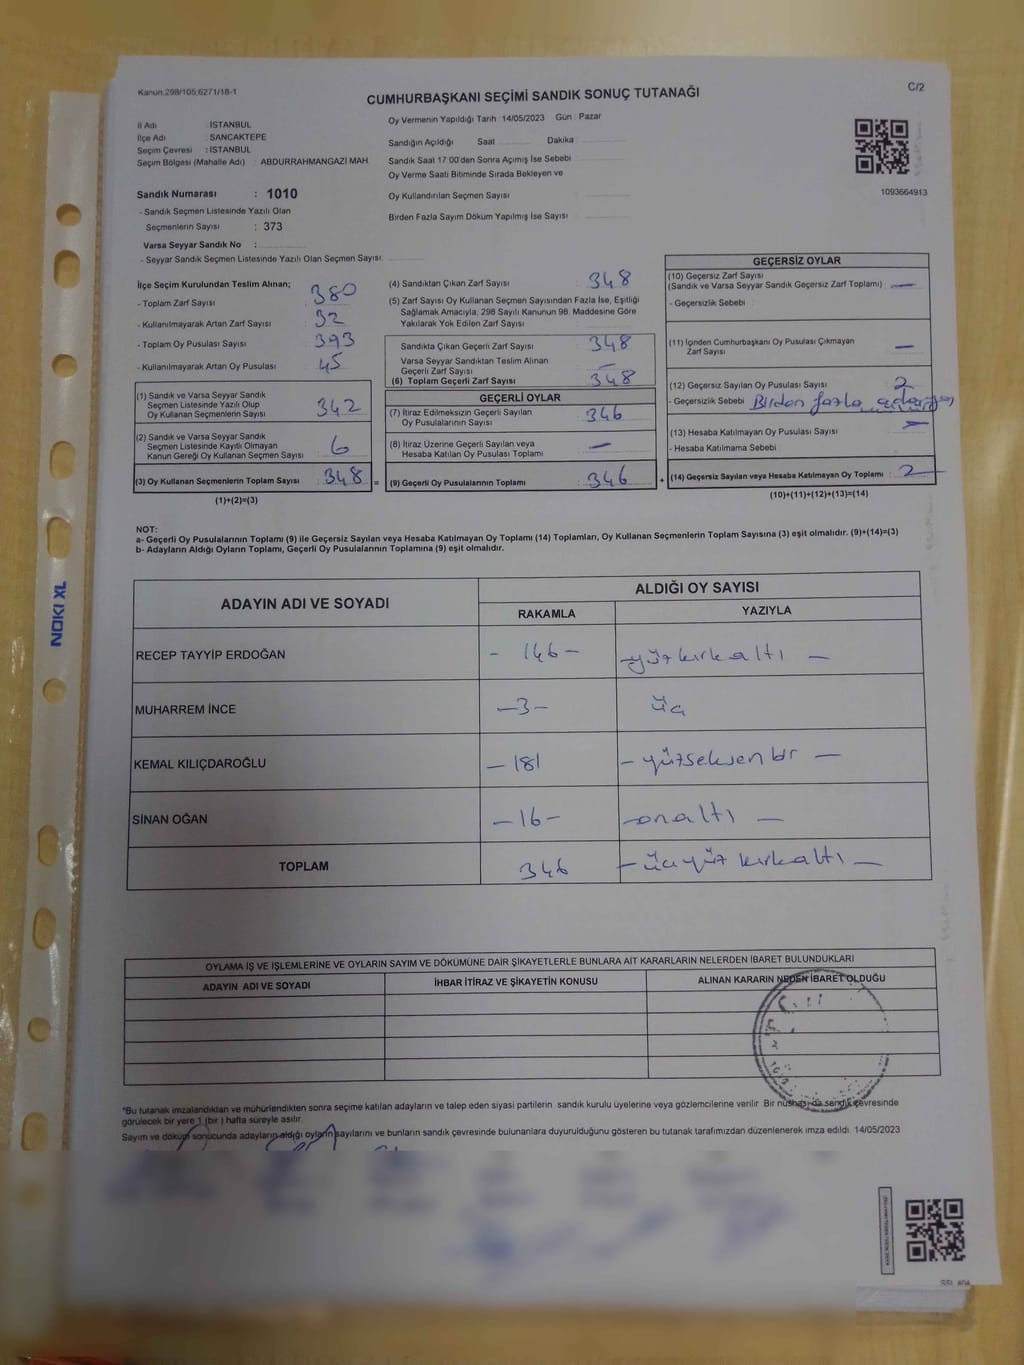 Kanun.298/105,6271/18-1
C/2
CUMHURBAŞKANI SEÇİMİ SANDIK SONUÇ TUTANAĞI
İl Adı : İSTANBUL
İlçe Adı : SANCAKTEPE
Seçim Çevresi : İSTANBUL
Seçim Bölgesi (Mahalle Adı) : ABDURRAHMANGAZİ MAH.
Sandık Numarası : 1010
- Sandık Seçmen Listesinde Yazılı Olan
Seçmenlerin Sayısı : 373
Varsa Seyyar Sandık No :
- Seyyar Sandık Seçmen Listesinde Yazılı Olan Seçmen Sayısı:
Oy Vermenin Yapıldığı Tarih : 14/05/2023 Gün : Pazar
Sandığın Açıldığı Saat Dakika
Sandık Saat 17:00'den Sonra Açımış İse Sebebi
Oy Verme Saati Bitiminde Sırada Bekleyen ve
Oy Kullandırılan Seçmen Sayısı
Birden Fazla Sayım Döküm Yapılmış İse Sayısı
1093664913
İlçe Seçim Kurulundan Teslim Alınan;
- Toplam Zarf Sayısı : 380
- Kullanılmayarak Artan Zarf Sayısı : 32
- Toplam Oy Pusulası Sayısı : 393
- Kullanılmayarak Artan Oy Pusulası : 45
(1) Sandık ve Varsa Seyyar Sandık
Seçmen Listesinde Yazılı Olup
Oy Kullanan Seçmenlerin Sayısı : 342
(2) Sandık ve Varsa Seyyar Sandık
Seçmen Listesinde Kayıtlı Olmayan
Kanun Gereği Oy Kullanan Seçmen Sayısı : 6
(3) Oy Kullanan Seçmenlerin Toplam Sayısı : 348 =
(1)+(2)=(3)
(4) Sandıktan Çıkan Zarf Sayısı : 348
(5) Zarf Sayısı Oy Kullanan Seçmen Sayısından Fazla İse, Eşitliği
Sağlamak Amacıyla, 298 Sayılı Kanunun 98. Maddesine Göre
Yakılarak Yok Edilen Zarf Sayısı
Sandıkta Çıkan Geçerli Zarf Sayısı : 348
Varsa Seyyar Sandıktan Teslim Alınan
Geçerli Zarf Sayısı : —
(6) Toplam Geçerli Zarf Sayısı : 348
GEÇERLİ OYLAR
(7) İtiraz Edilmeksizin Geçerli Sayılan
Oy Pusulalarının Sayısı : 346
(8) İtiraz Üzerine Geçerli Sayılan veya
Hesaba Katılan Oy Pusulası Toplamı : —
(9) Geçerli Oy Pusulalarının Toplamı : 346 +
GEÇERSİZ OYLAR
(10) Geçersiz Zarf Sayısı
(Sandık ve Varsa Seyyar Sandık Geçersiz Zarf Toplamı) : —
- Geçersizlik Sebebi :
(11) İçinden Cumhurbaşkanı Oy Pusulası Çıkmayan
Zarf Sayısı : —
(12) Geçersiz Sayılan Oy Pusulası Sayısı : 2
- Geçersizlik Sebebi : Birden fazla
(13) Hesaba Katılmayan Oy Pusulası Sayısı : —
- Hesaba Katılmama Sebebi :
(14) Geçersiz Sayılan veya Hesaba Katılmayan Oy Toplamı : 2 —
(10)+(11)+(12)+(13)=(14)
NOT:
a- Geçerli Oy Pusulalarının Toplamı (9) ile Geçersiz Sayılan veya Hesaba Katılmayan Oy Toplamı (14) Toplamları, Oy Kullanan Seçmenlerin Toplam Sayısına (3) eşit olmalıdır. (9)+(14)=(3)
b- Adayların Aldığı Oyların Toplamı, Geçerli Oy Pusulalarının Toplamına (9) eşit olmalıdır.
ADAYIN ADI VE SOYADI
ALDIĞI OY SAYISI
RAKAMLA YAZIYLA
RECEP TAYYİP ERDOĞAN - 146 - — yüz kırk altı —
MUHARREM İNCE — 3 — üç
KEMAL KILIÇDAROĞLU — 181 — yüzseksen bir —
SİNAN OĞAN — 16 — — onaltı —
TOPLAM 346 — üçyüz kırkaltı —
OYLAMA İŞ VE İŞLEMLERİNE VE OYLARIN SAYIM VE DÖKÜMÜNE DAİR ŞİKAYETLERLE BUNLARA AİT KARARLARIN NELERDEN İBARET BULUNDUKLARI
ADAYIN ADI VE SOYADI İHBAR İTİRAZ VE ŞİKAYETİN KONUSU ALINAN KARARIN NEDEN İBARET OLDUĞU
*Bu tutanak imzalandıktan ve mühürlendikten sonra seçime katılan adayların ve talep eden siyasi partilerin sandık kurulu üyelerine veya gözlemcilerine verilir. Bir nüshası da sandık çevresinde
görülecek bir yere 1 (bir ) hafta süreyle asılır.
Sayım ve döküm sonucunda adayların aldığı oyların sayılarını ve bunların sandık çevresinde bulunanlara duyurulduğunu gösteren bu tutanak tarafımızdan düzenlenerek imza edildi. 14/05/2023
NOKI XL